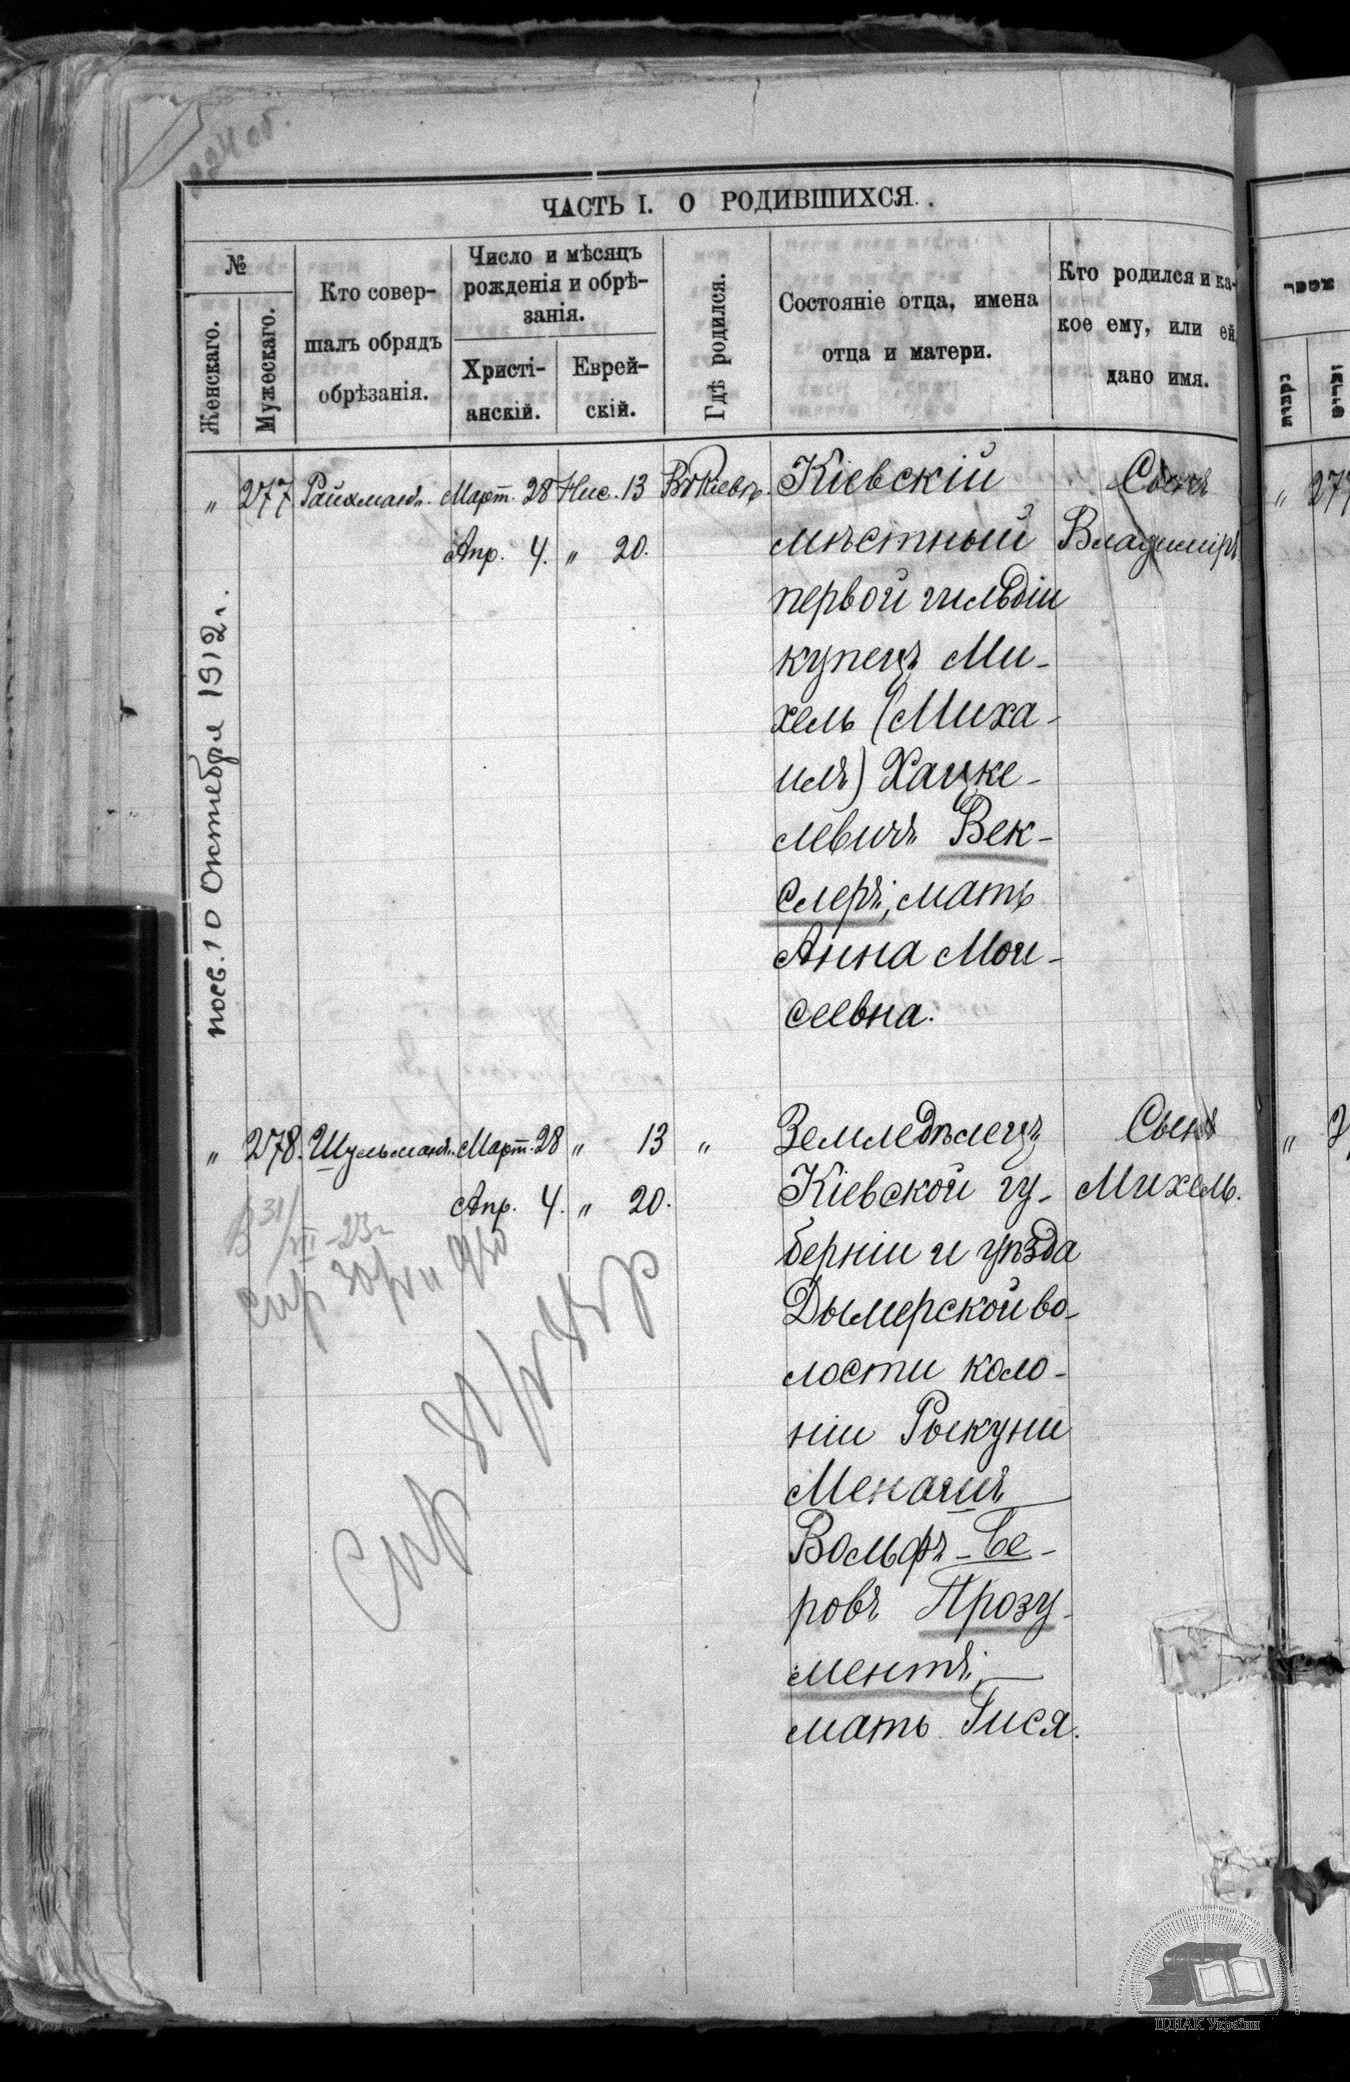 224 об.
ЧАСТЬ I. О РОДИВШИХСЯ.
№
Женскаго.
Мужескаго.
Кто совер-
шалъ обрядъ
обрѣзанія.
Число и мѣсяцъ
рожденія и обрѣ-
занія.
Христі-
анскій.
Еврей-
скій.
Гдѣ родился.
Состояніе отца, имена
отца и матери.
Кто родился и ка-
кое ему, или ей,
дано имя.
" 277 Райхманъ. Март. 28 Нис. 13 Въ Кіевѣ.
Апр. 4. " 20.
Кіевскій
мѣстный
первой гильдіи
купецъ Ми-
хель (Миха-
илъ) Хацке-
левичъ Век-
слеръ, мать
Анна Мои-
сеевна.
Сынъ
Владиміръ
пос. 10 Октября 1912 г.
" 278. Шульманъ. Март. 28 " 13 "
Апр. 4. " 20.
Земледѣлецъ
Кіевской гу-
берніи и уѣзда
Дымерской во-
лости коло-
ніи Рыкуни
Менашъ
Вольфъ-Бе-
ровъ Прозу-
ментъ,
мать Гися.
Сынъ
Михель.
" 277
"
ЦДІАК України